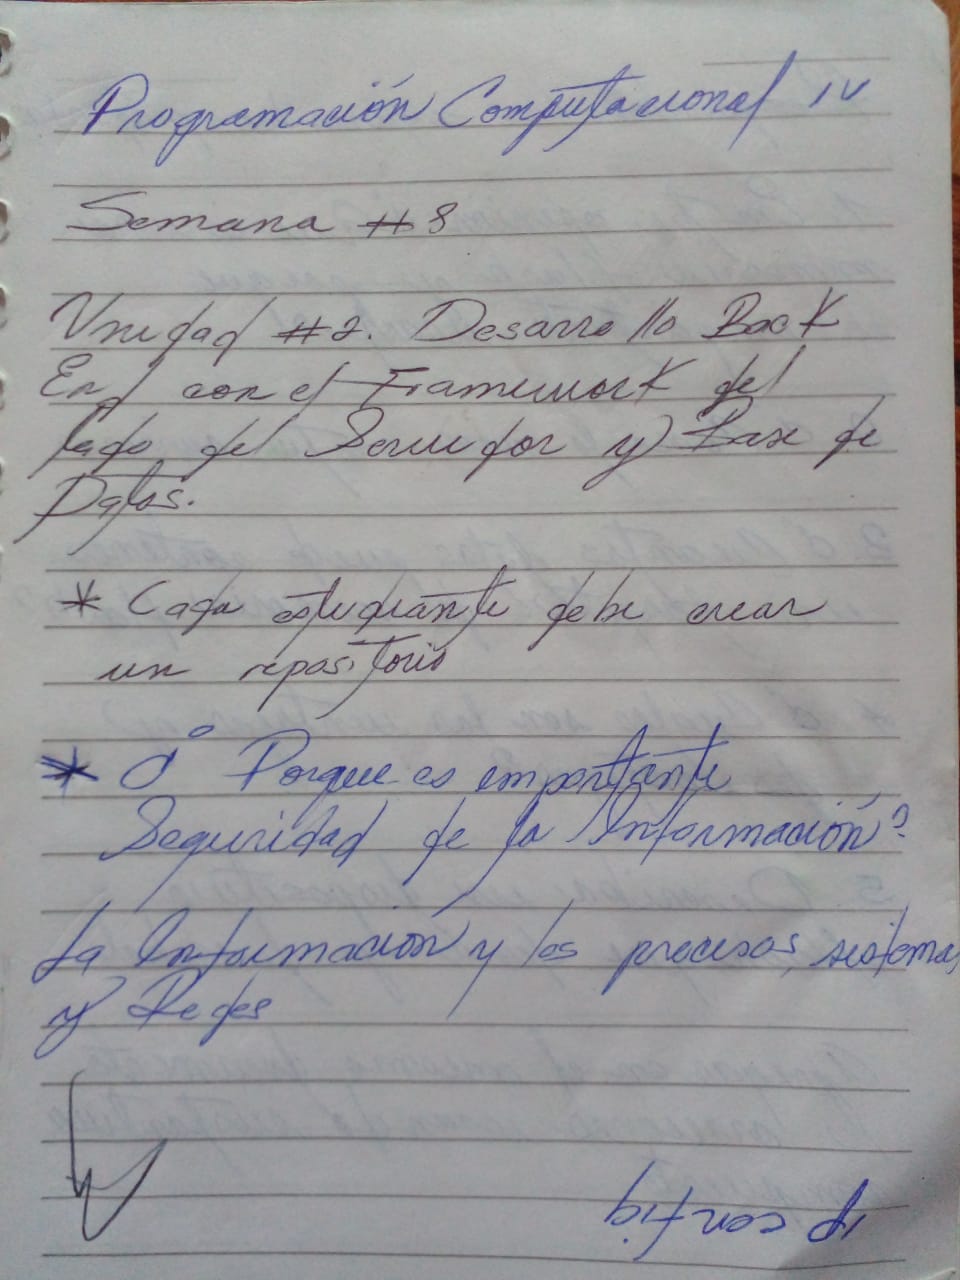 Programación Computacional IV
Semana #8
Unidad #2. Desarrollo Back
End con el Framework del
lado del Servidor y Base de
Datos.
* Cada estudiante debe crear
un repositorio
* ¿ Porque es importante
Seguridad de la Información?
La Información y los procesos, sistemas
y Redes
IP config